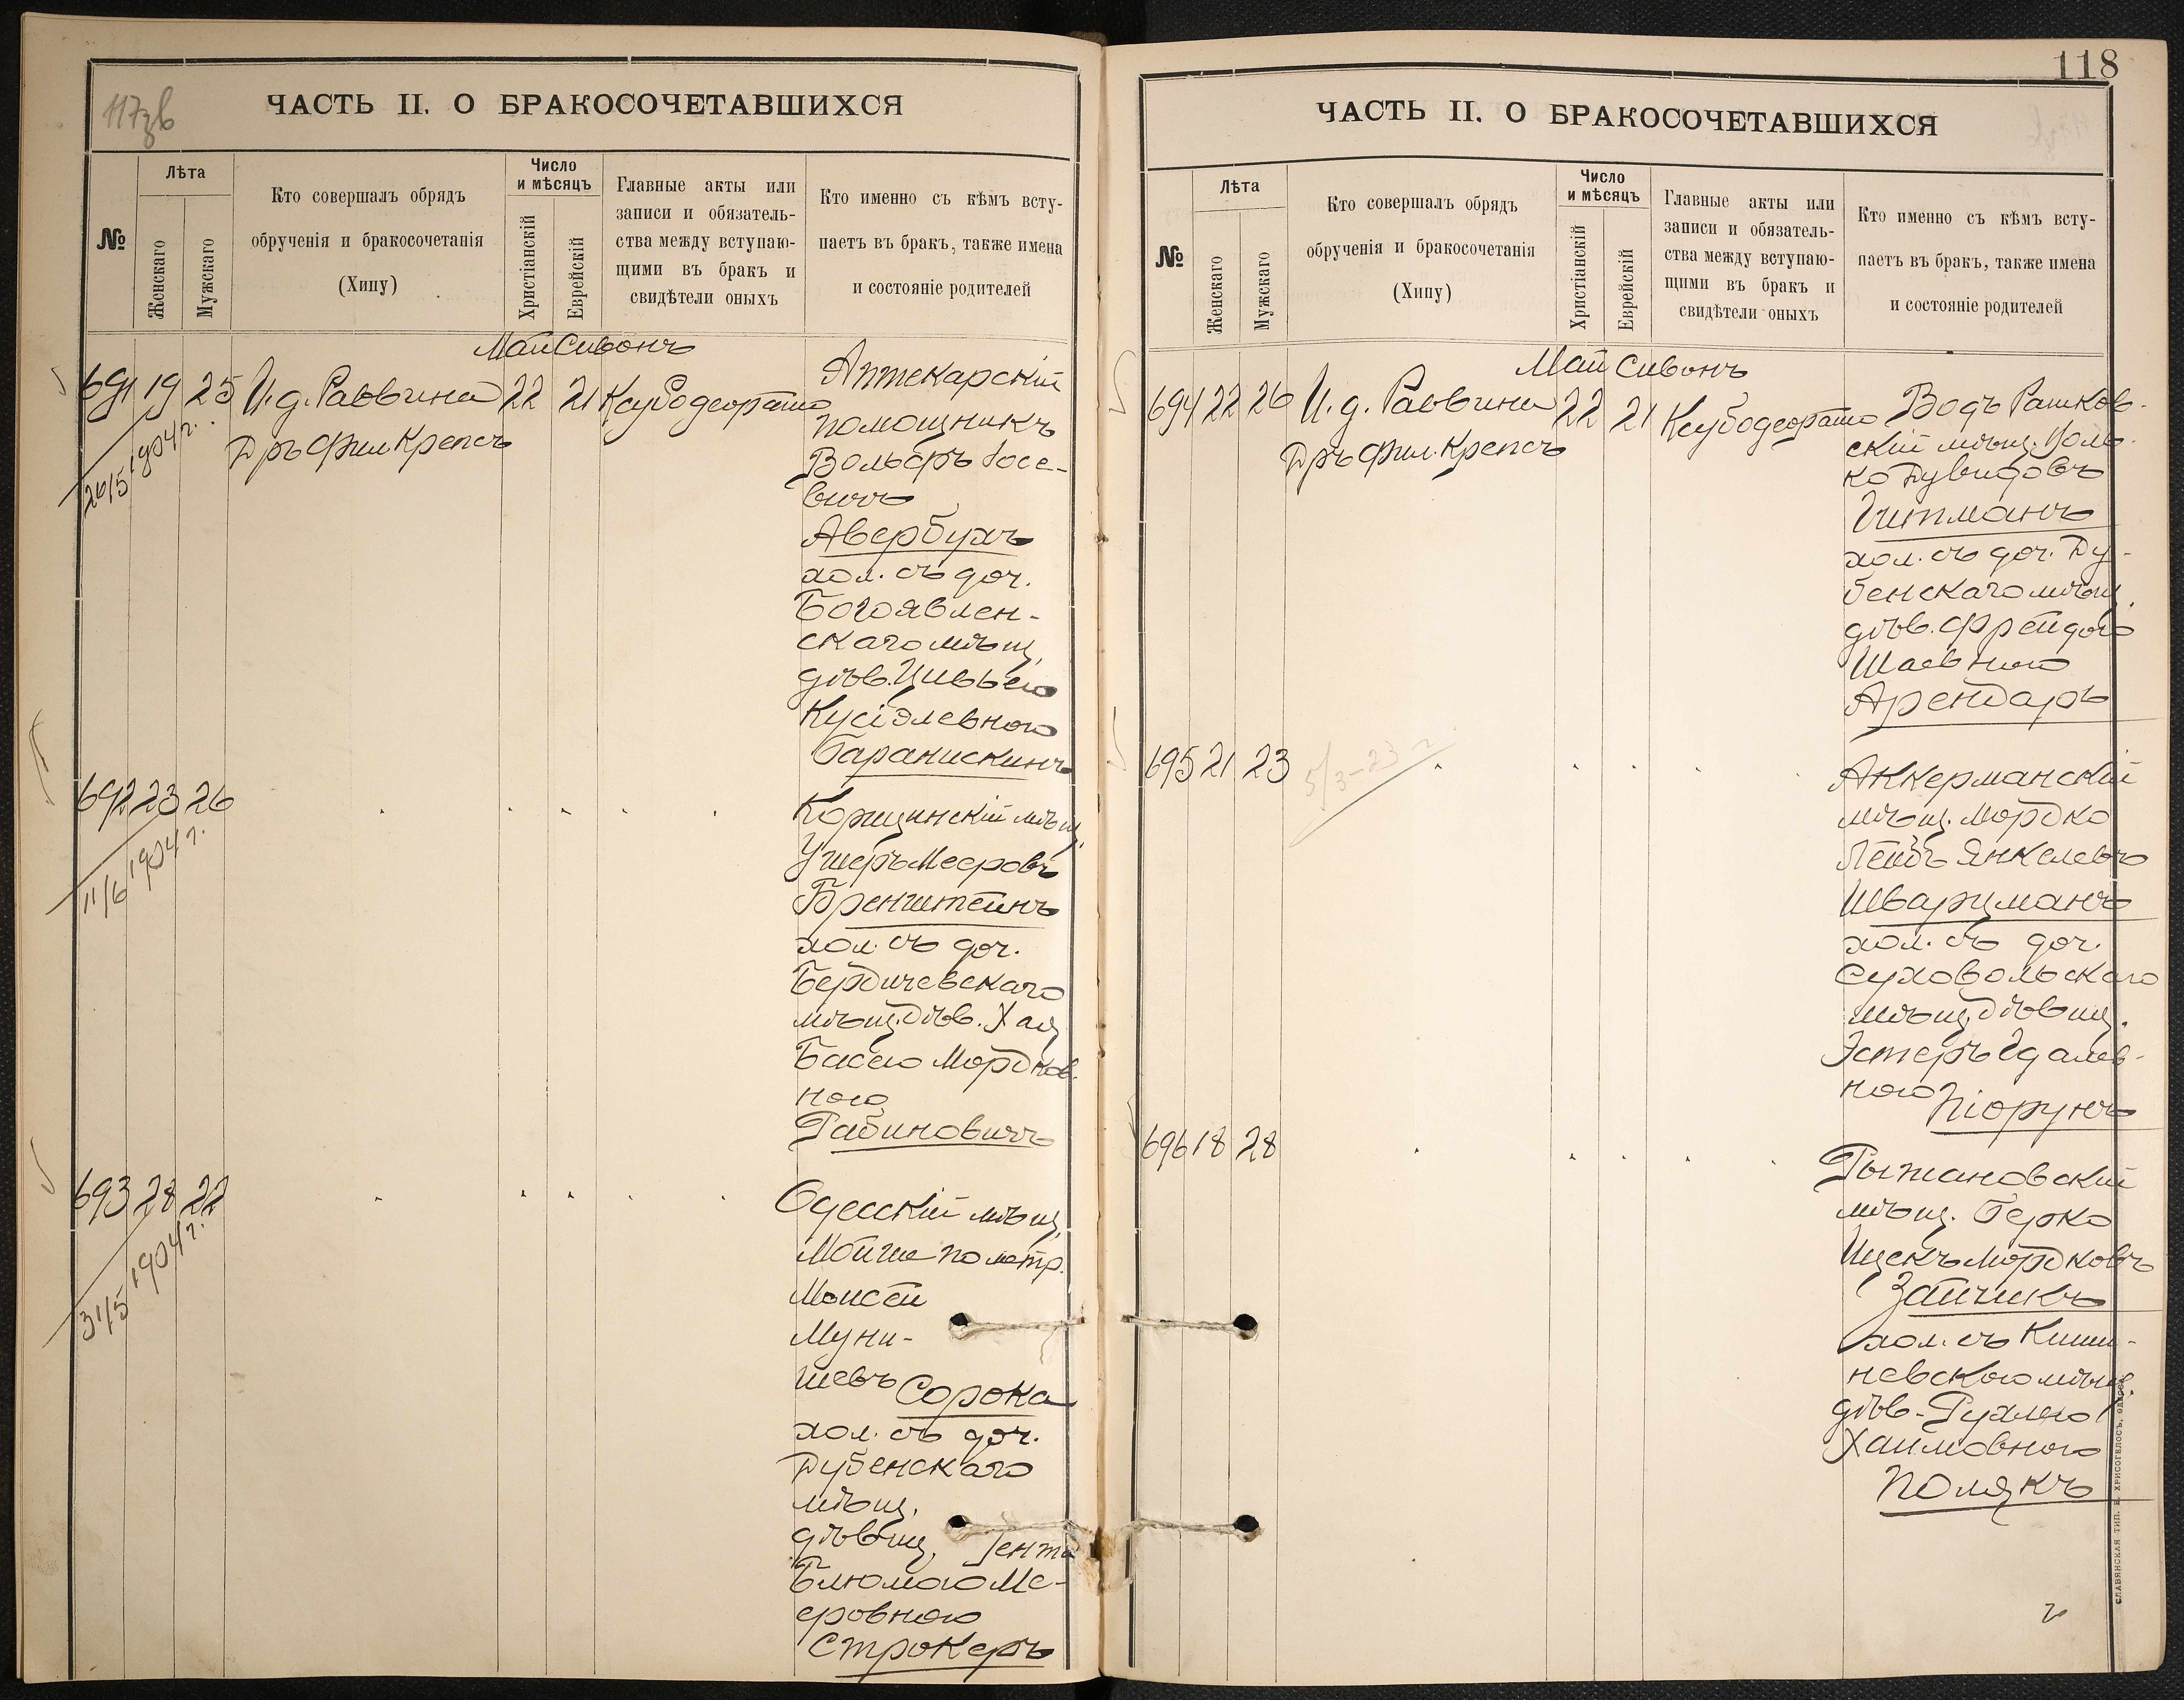 117зв
ЧАСТЬ II. О БРАКОСОЧЕТАВШИХСЯ
№
Лѣта
Женскаго
Мужскаго
Кто совершалъ обрядъ
обрученія и бракосочетанія
(Хипу)
Число
и мѣсяцъ
Христіанскій
Еврейскій
Главные акты или
записи и обязатель-
ства между вступаю-
щими въ бракъ и
свидѣтели оныхъ
Кто именно съ кѣмъ всту-
паетъ въ бракъ, также имена
и состояніе родителей
Май Сивонъ
691 19 25 И.д. Раввина 22 21 Ксубодеорато
Дръ Фил Крепсъ
26/5 1904 г.
Аптекарскій
помощникъ
Вольфъ Іосе-
вичъ
Авербухъ
хол. съ доч.
Богоявлен-
скаго мѣщ.
дѣв. Цивьею
Кусіэлевною
Баранискинъ
692 23 26
11/6 1904 г.
Корицинскій мѣщ.
Ушеръ Мееровъ
Бренштейнъ
хол. съ доч.
Бердичевскаго
мѣщ. дѣв. Хая
Басею Мордков-
ною
Рабиновичъ
693 28 22
31/5 1904 г.
Одесскій мѣщ.
Мойше по метр.
Моисей
Муни-
шевъ Сорока
хол. съ доч.
Дубенскаго
мѣщ.
дѣвиц. Гента
Блюмою Ме-
еровною
Строкеръ
118
ЧАСТЬ II. О БРАКОСОЧЕТАВШИХСЯ
№
Лѣта
Женскаго
Мужскаго
Кто совершалъ обрядъ
обрученія и бракосочетанія
(Хипу)
Число
и мѣсяцъ
Христіанскій
Еврейскій
Главные акты или
записи и обязатель-
ства между вступаю-
щими въ бракъ и
свидѣтели оныхъ
Кто именно съ кѣмъ всту-
паетъ въ бракъ, также имена
и состояніе родителей
Май Сивонъ
694 22 26 И.д. Раввина 22 21 Ксубодеорато
Дръ Фил. Крепсъ
Водъ Рашков-
скій мѣщ. Воль-
ко Дувидовъ
Гитманъ
хол. съ доч. Ду-
бенскаго мѣщ.
дѣв. Фрейдою
Шаевною
Арендаръ
695 21 23
5/3-23 г.
Аккерманскій
мѣщ. Мордко
Лейзъ Янкелевъ
Шварцманъ
хол. съ доч.
Суховольскаго
мѣщ. дѣвиц.
Эстеръ Гдалев-
ною Піорунъ
696 18 28
Рыжановскій
мѣщ. Герко
Ицекъ Мордковъ
Зайчикъ
хол. съ Киши-
невскою мѣщ.
дѣв. Рухлею
Хаимовною
Полякъ
СЛАВЯНСКАЯ ТИП. Н. ХРИСОГЕЛОСЪ, ОДЕССА